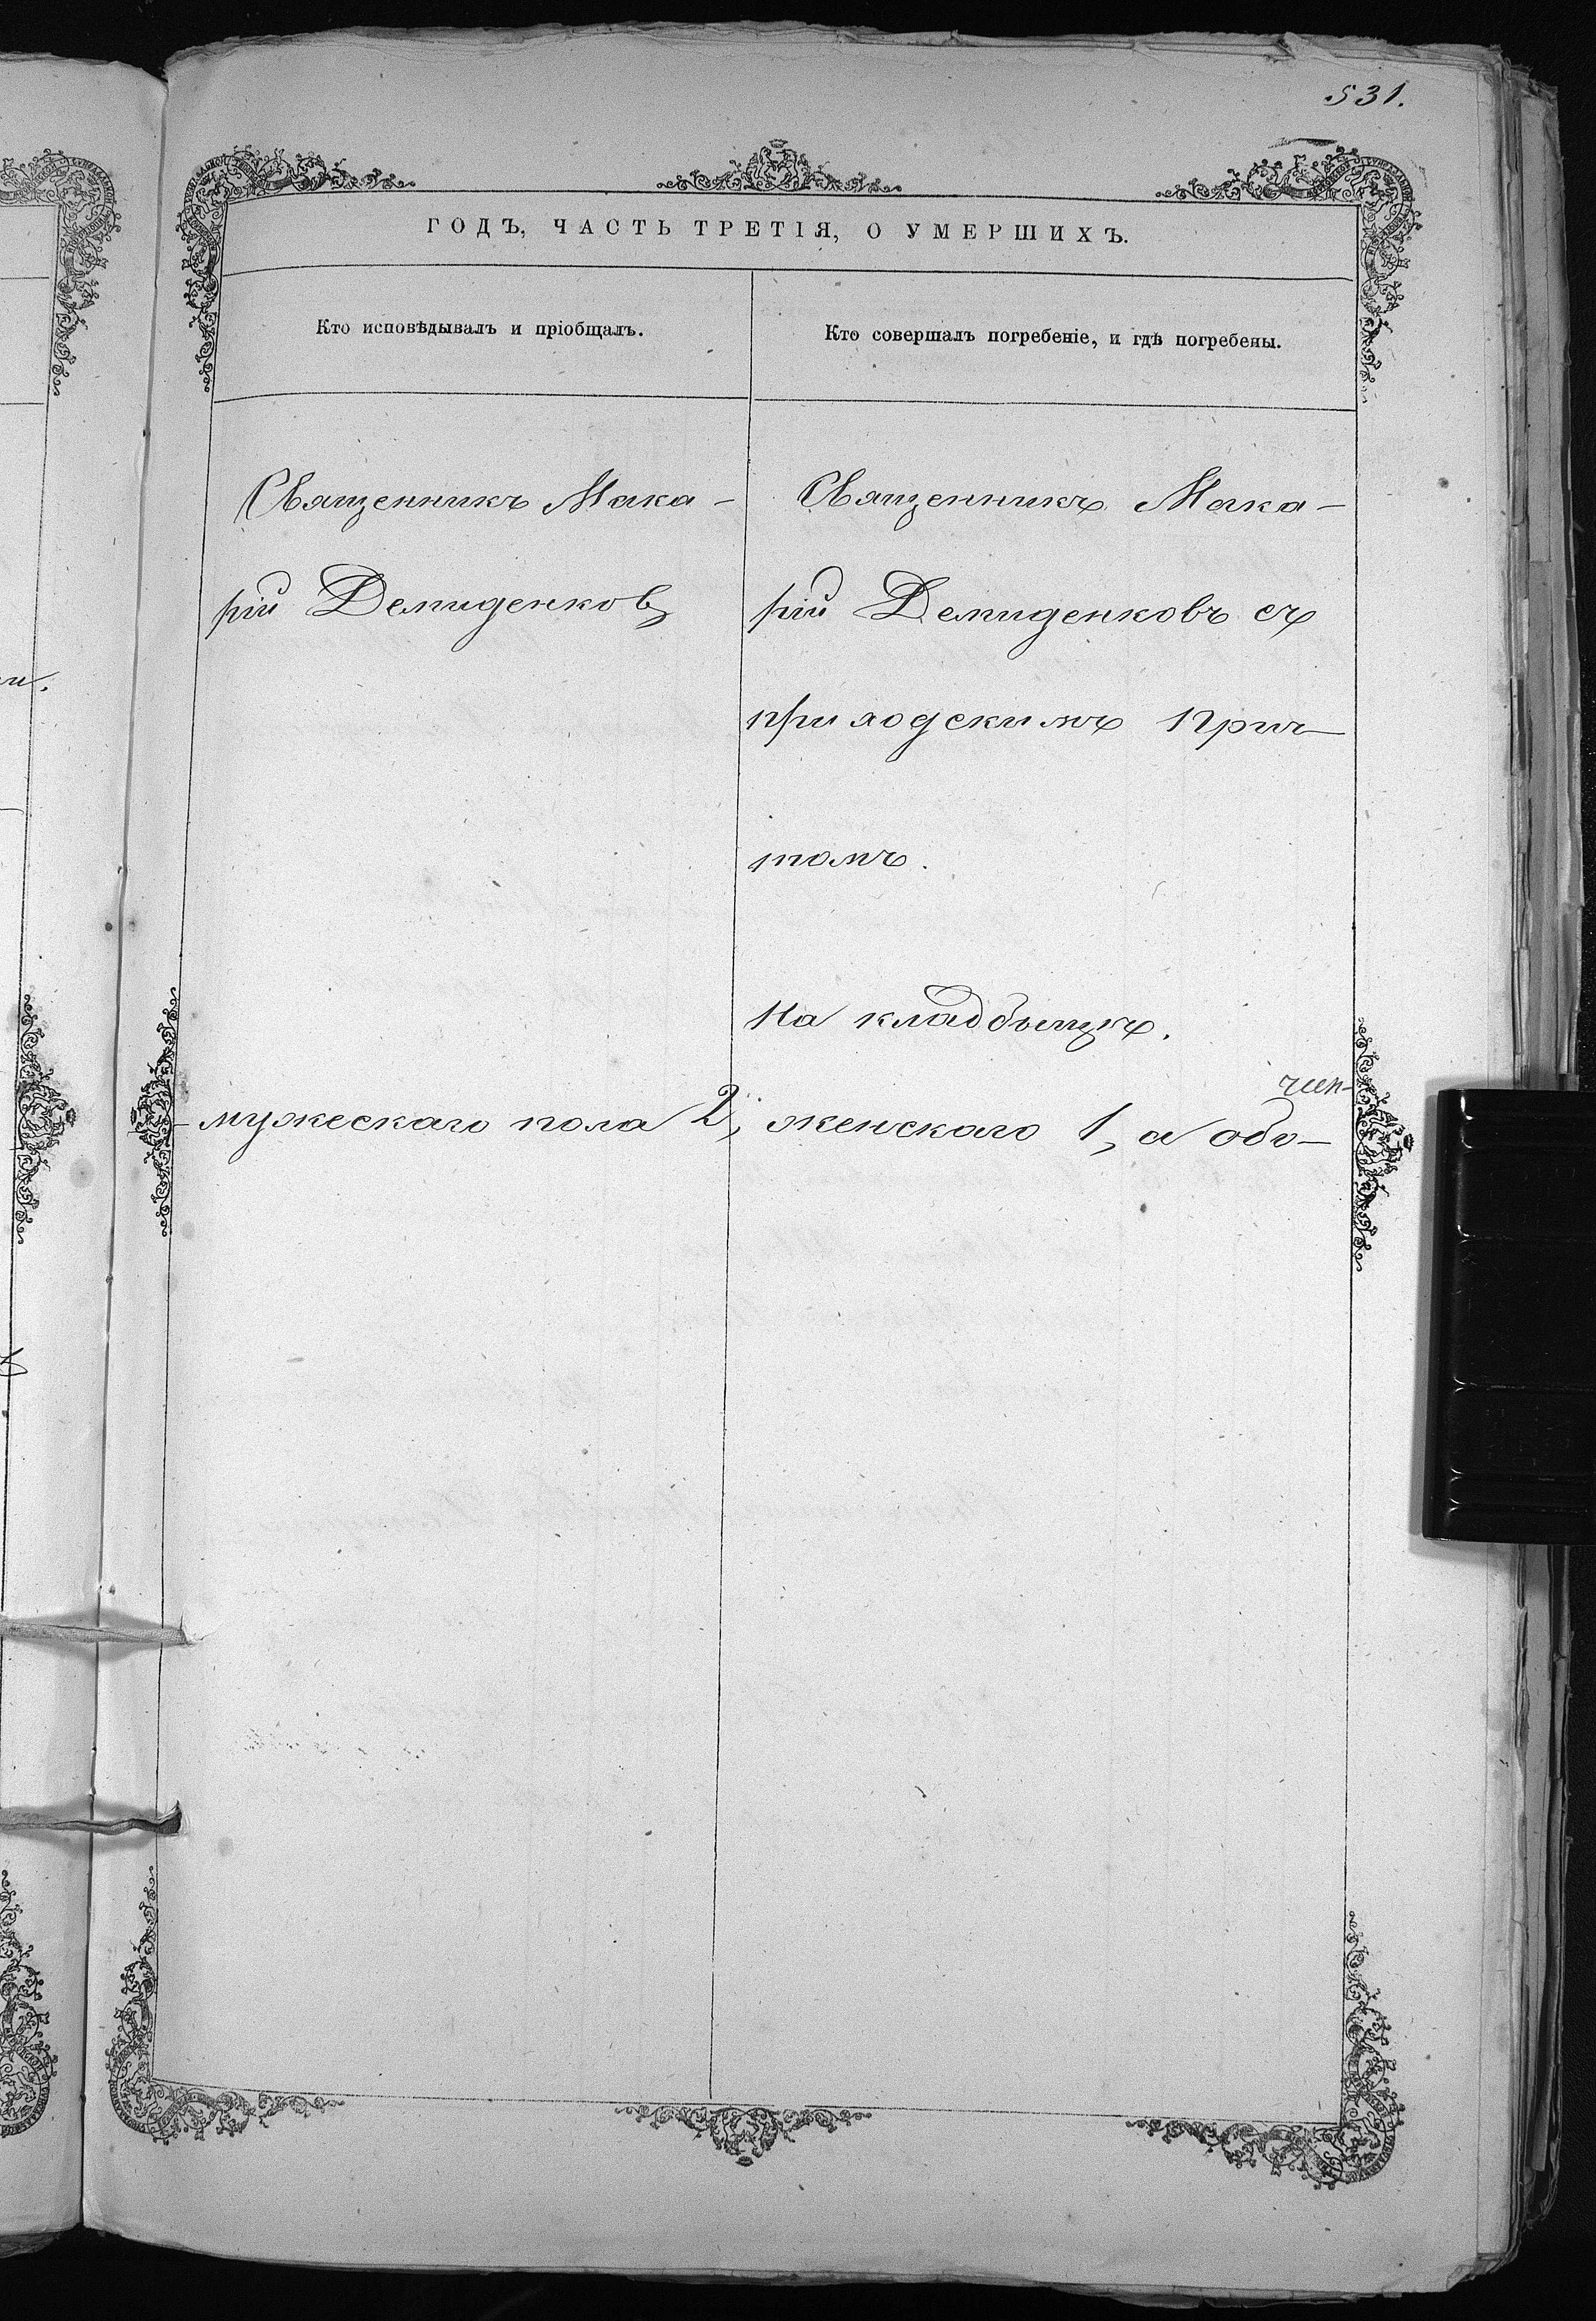 531.
ГОДЪ, ЧАСТЬ ТРЕТІЯ, О УМЕРШИХЪ.
Кто исповѣдывалъ и пріобщалъ.
Кто совершалъ погребеніе, и гдѣ погребены.
Священникъ Мака-
рій Демиденковъ
Священникъ Мака-
рій Демиденковъ съ
приходскимъ прич-
томъ.
На кладбыщѣ.
мужескаго пола 2, женскаго 1, а обо-